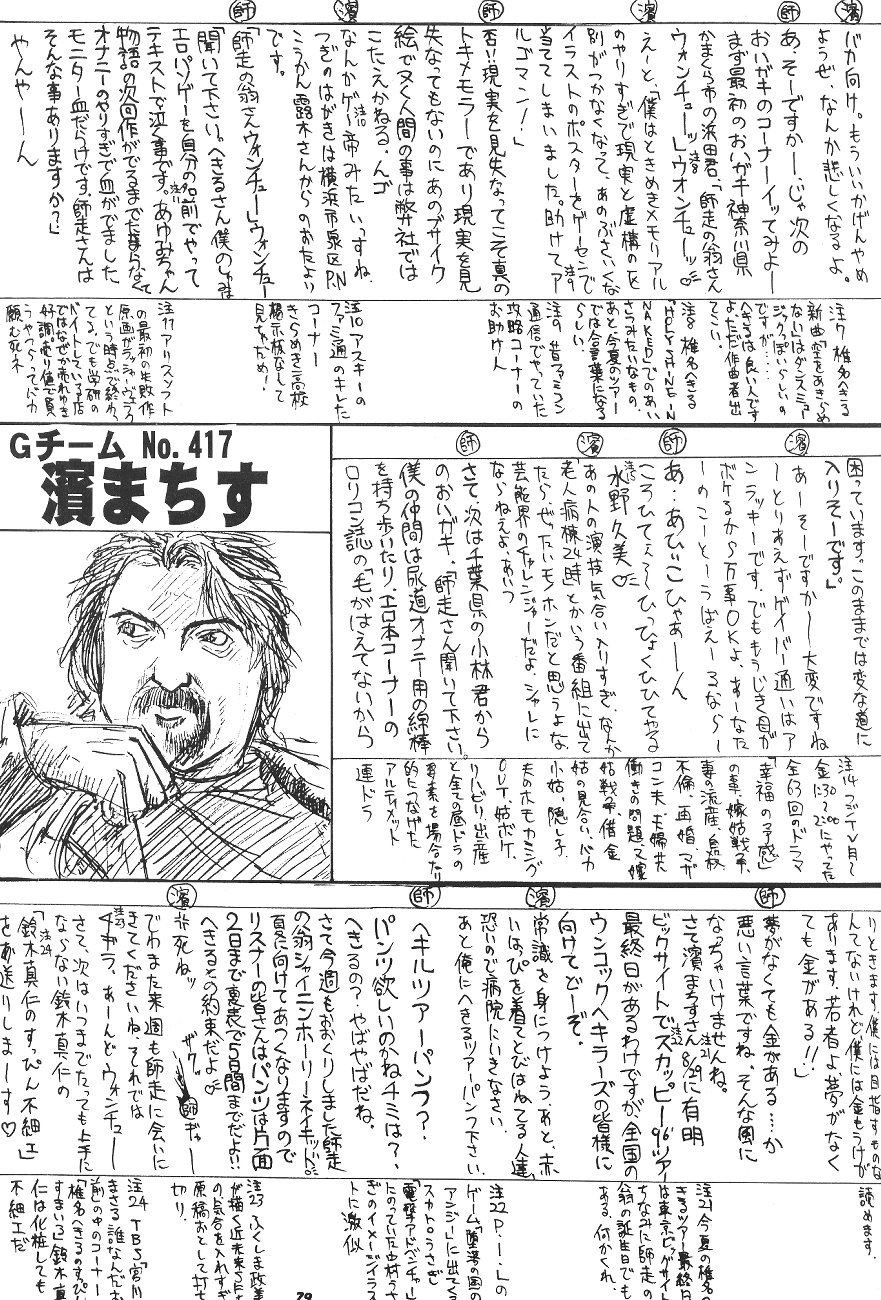 濱
バカ向け。もういいかげんやめ
ようぜ、なんか悲しくなるよ。
師
あ、そーですかー、じゃ次の
おいガキのコーナーイッてみよー
まず最初のおいガキ神奈川県
かまくら市の浜田君、「師走の翁さん
ウォンチューッ」ウォンチューッ♡
注8
濱
えーと、「僕はときめきメモリアル
のやりすぎで現実と虚構のく
別がつかなくなって、あのぶさいくな
イラストのポスターをゲーセンで
当ててしまいました。助けてア
ルゴマン!」
注9
師
否!!現実を見失なってこそ真の
トキメモラーであり現実を見
失なってもないのにあのブサイク
絵でヌく人間の事は弊社では
こたえかねる、んゴ
濱
なんかゲー帝みたいっすね。
注10
つぎのはがきは横浜市泉区P.N
こうかん露木さんからのおたより
です。
師
「師走の翁さんウォンチュー」ウォンチュー
「聞いて下さい。へきるさん僕のしゅみ
エロパソゲーを自分の名前でやって
テキストで泣く事です。あゆみちゃん
注11
物語の次回作がでるまでたまらなくて
オナニーのやりすぎで血がでました
モニター血だらけです。師走さんは
そんな事ありますか?」
やんやーん
注7 椎名へきる
新曲「空をあきらめ
ない」はダンスミュー
ジックっぽいらしいの
ですが……
へきるは良い人です
よ、ただ作曲者出
てこい。
注8 椎名へきる
「HOLY SHINE IN
NAKED」でのあい
さつみたいなもの、
あと今夏のツアー
では合言葉になる
らしい。
注9 昔ファミコン
通信でやっていた
攻略コーナーの
お助け人
注10 アスキーの
ファミ通のキレた
コーナー
きらめき高校
掲示板なんて
見ちゃだめ!
注11 アリスソフト
の最初の失敗作
原画がラッシャーヴェラク
という時点で終わっ
てる。でも学研の
バイトしている店
ではなぜか売れゆき
好調
Gチーム No.417
濱まちす
困っています。このままでは変な道に
入りそーです。」
濱
あーそーですかー大変ですね
ーとりあえずゲイバー通いはア
ンラッキーです。でももうじき母が
ボケるから万事OKよ、あーなた
ーのこーとーうばえーるならー
師
あ…あひいこひゃあーん
ころひてょろ〜ひっひょくひひてやる
濱
水野久美♡
注15
あの人の演技気合い入りすぎ、なんか
老人病棟24時とかいう番組に出て
たら、ぜったいモノホンだと思うよな
芸能界のチャレンジャーだよ、シャレに
ならねえよ、あいつ
師
さて、次は千葉県の小林君から
のおいガキ、「師走さん聞いて下さい。
僕の仲間は尿道オナニー用の綿棒
を持ち歩いたり、エロ本コーナーの
ロリコン誌の「毛がはえてないから
注14 フジTV月〜
金に1:30〜2:00にやってた
全63回のドラマ
「幸福の予感」
の事、嫁姑戦争、
妻の流産、自殺
不倫、再婚、マザ
コン夫、主婦共
働きの問題、又嫁
姑戦争、借金
姑の見合い、バカ
小姑、隠し子
夫のホモカミング
OUT、姑ボケ、
リハビリ出産
と全ての昼ドラの
要素を場合たり
的につなげた
アルティメット
連ドラ
りときます。僕には目指すものな
んてないけれど僕には金もうけが
あります。若者よ夢がなく
ても金がある!!」
師
夢がなくても金がある…か
悪い言葉ですね、そんな風に
なっちゃいけませんね。
さて濱まちすさん8/29に有明
注21
ビックサイトでスカッピー96ツアー
注22
最終日があるわけですが、全国の
ウンコックヘキラーズの皆様に
向けてどーぞ。
濱
常識を身につけよう、あと、赤
いはっぴを着てとびはねてる人達
恐いので病院にいきなさい。
あと俺にへきるツアーパンフ下さい。
師
ヘキルツアーパンフ?.
パンツ欲しいのかねチミは?、
へきるの?、やばやばだね。
さて今週もおくりしました師走
の翁シャイニンホーリーネイキッド。
夏に向けてあつくなりますので
リスナーの皆さんはパンツは片面
2日まで裏表で5日間までだよ!!
へきるとの約束だよ♡
濱
で死ねッ
ザクッ
師
ギャー
でわまた来週も師走に会いに
きてくださいね、それでは
注23
さて、次はいつまでたっても上手に
ならない鈴木真仁の
「鈴木真仁のすっぴん不細工」
注24
をお送りしまーす♡
読めます。
注21 今夏の椎名へ
きるツアー最終日
は東京ビッグサイト
ちなみに師走の
翁の誕生日でも
ある、何かくれ、
注22 P.J.の
ゲーム「堕落の国の
アンジー」に出てくる
スカトロうさぎ
「電撃アドベンチャー」
にのっていた中村うさ
ぎのイメージイラス
トに激似
注23 ふくしま政美
が描く近未来
の気合を入れすぎ
原稿おとして打ち
切り。
注24 TBS「宮川
まさる 誰なんだお
前」の中のコーナー
「椎名へきるのすっぴん
すまいる」鈴木真
仁は化粧しても
不細工だ
29